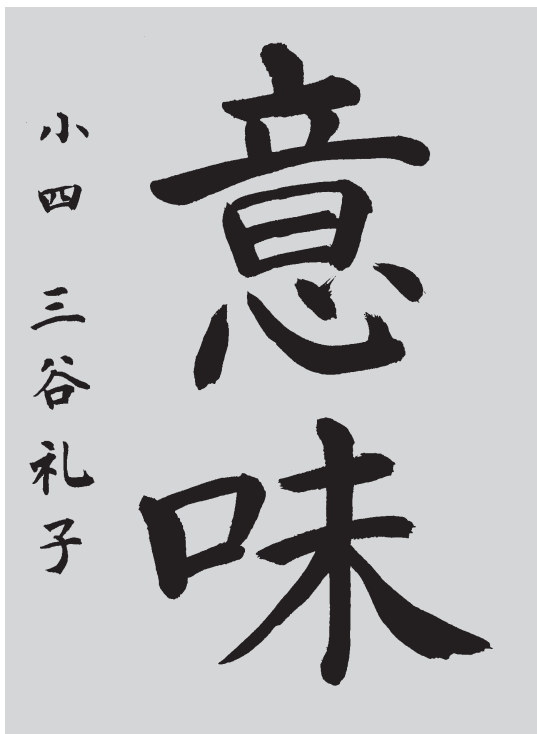 意味
小四 三谷礼子